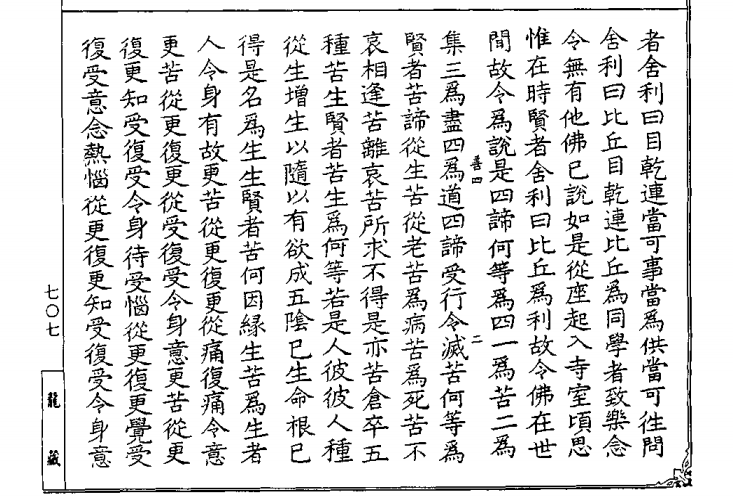 者舍利曰目乾連當可事當為供當可往問
舍利曰比丘目乾連比丘為同學者致樂念
令無有他佛已說如是從座起入寺室頃思
惟在時賢者舍利曰比丘為利故令佛在世
間故令為說是四諦何等為四一為苦二為
善四
二
集三為盡四為道四諦受行令滅苦何等為
賢者苦諦從生苦從老苦為病苦為死苦不
哀相逢苦離哀苦所求不得是亦苦倉卒五
種苦生賢者苦生為何等若是人彼彼人種
從生增生以隨以有欲成五陰已生命根已
得是名為生生賢者苦何因緣生苦為生者
人令身有故更苦從更復更從痛復痛令意
更苦從更復更從受復受令身意更苦從更
復更知受復受令身待受惱從更復更覺受
復受意念熱惱從更復更知受復受令身意
七〇七
龍藏